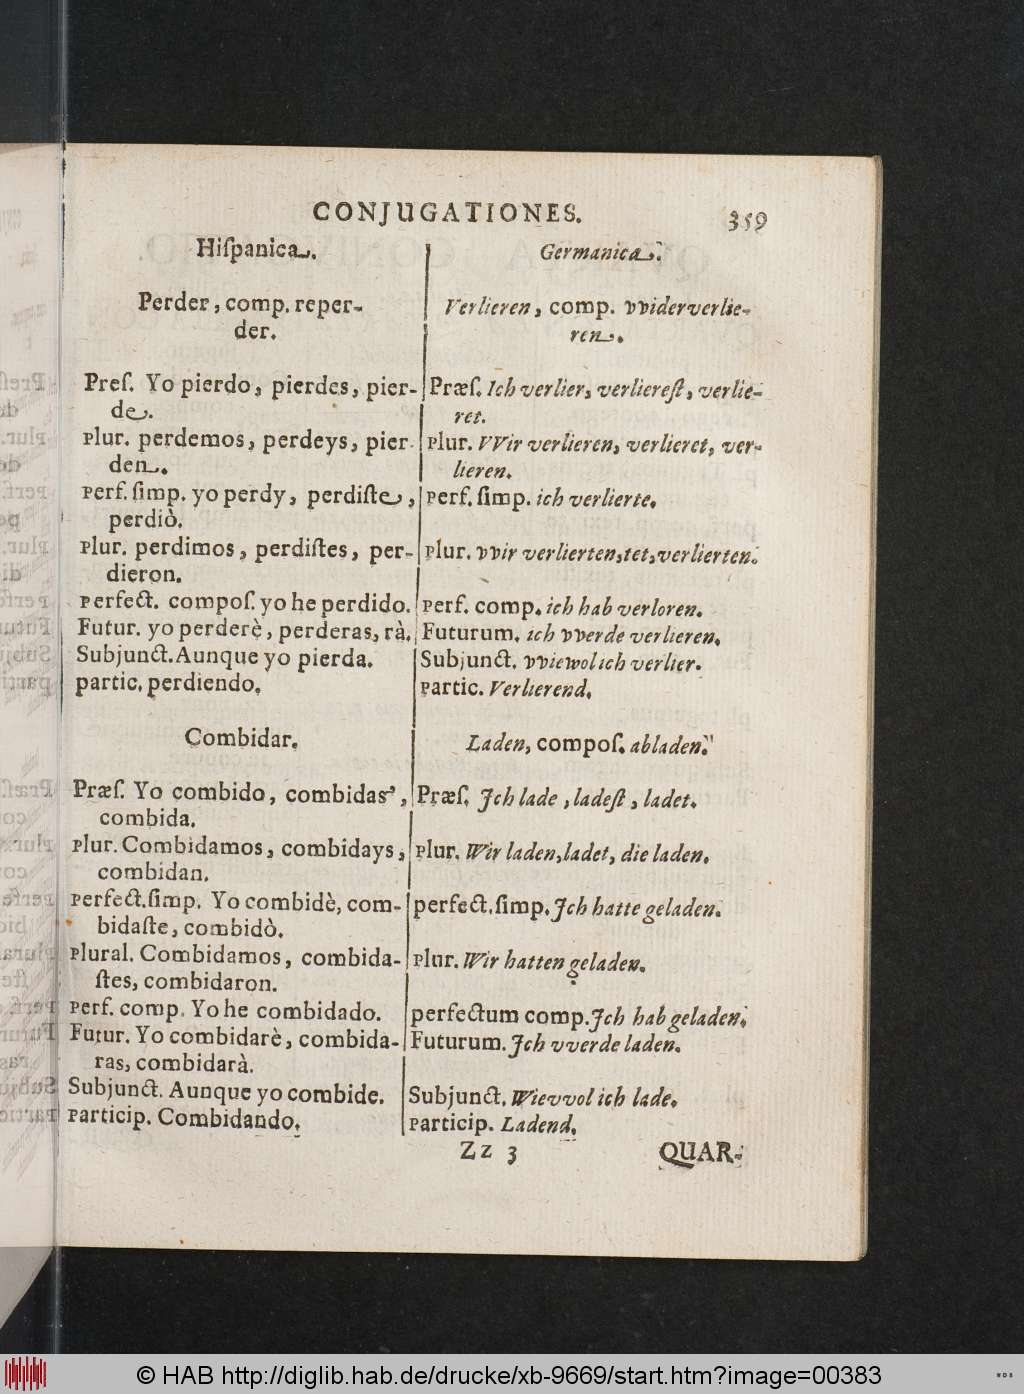 CONJUGATIONES. 359
Hiſpanica.
Perder, comp. reper-
der.
Preſ. Yo pierdo, pierdes, pier-
de.
Plur. perdemos, perdeys, pier-
den.
Perf. ſimp. yo perdy, perdiſte,
perdiò.
Plur. perdimos, perdiſtes, per-
dieron.
Perfect. compoſ. yo he perdido.
Futur. yo perderè, perderas, rà.
Subjunct. Aunque yo pierda.
partic. perdiendo.
Combidar.
Præſ. Yo combido, combidas,
combida.
Plur. Combidamos, combidays,
combidan.
Perfect. ſimp. Yo combidè, com-
bidaſte, combidò.
Plural. Combidamos, combida-
ſtes, combidaron.
Perf. comp. Yo he combidado.
Futur. Yo combidarè, combida-
ras, combidarà.
Subjunct. Aunque yo combide.
Particip. Combidando.
Germanica.
Verlieren, comp. vviderverlie-
ren.
Præſ. Ich verlier, verliereſt, verlie-
ret.
Plur. VVir verlieren, verlieret, ver-
lieren.
Perf. ſimp. ich verlierte.
Plur. vvir verlierten, tet, verlierten.
Perf. comp. ich hab verloren.
Futurum. ich vverde verlieren.
Subjunct. vviewol ich verlier.
Partic. Verlierend.
Laden, compoſ. abladen.
Præſ. Ich lade, ladeſt, ladet.
Plur. Wir laden, ladet, die laden.
perfect. ſimp. Ich hatte geladen.
Plur. Wir hatten geladen.
perfectum comp. Ich hab geladen.
Futurum. Ich vverde laden.
Subjunct. Wievvol ich lade.
Particip. Ladend.
Zz 3 QUAR-
© HAB http://diglib.hab.de/drucke/xb-9669/start.htm?image=00383